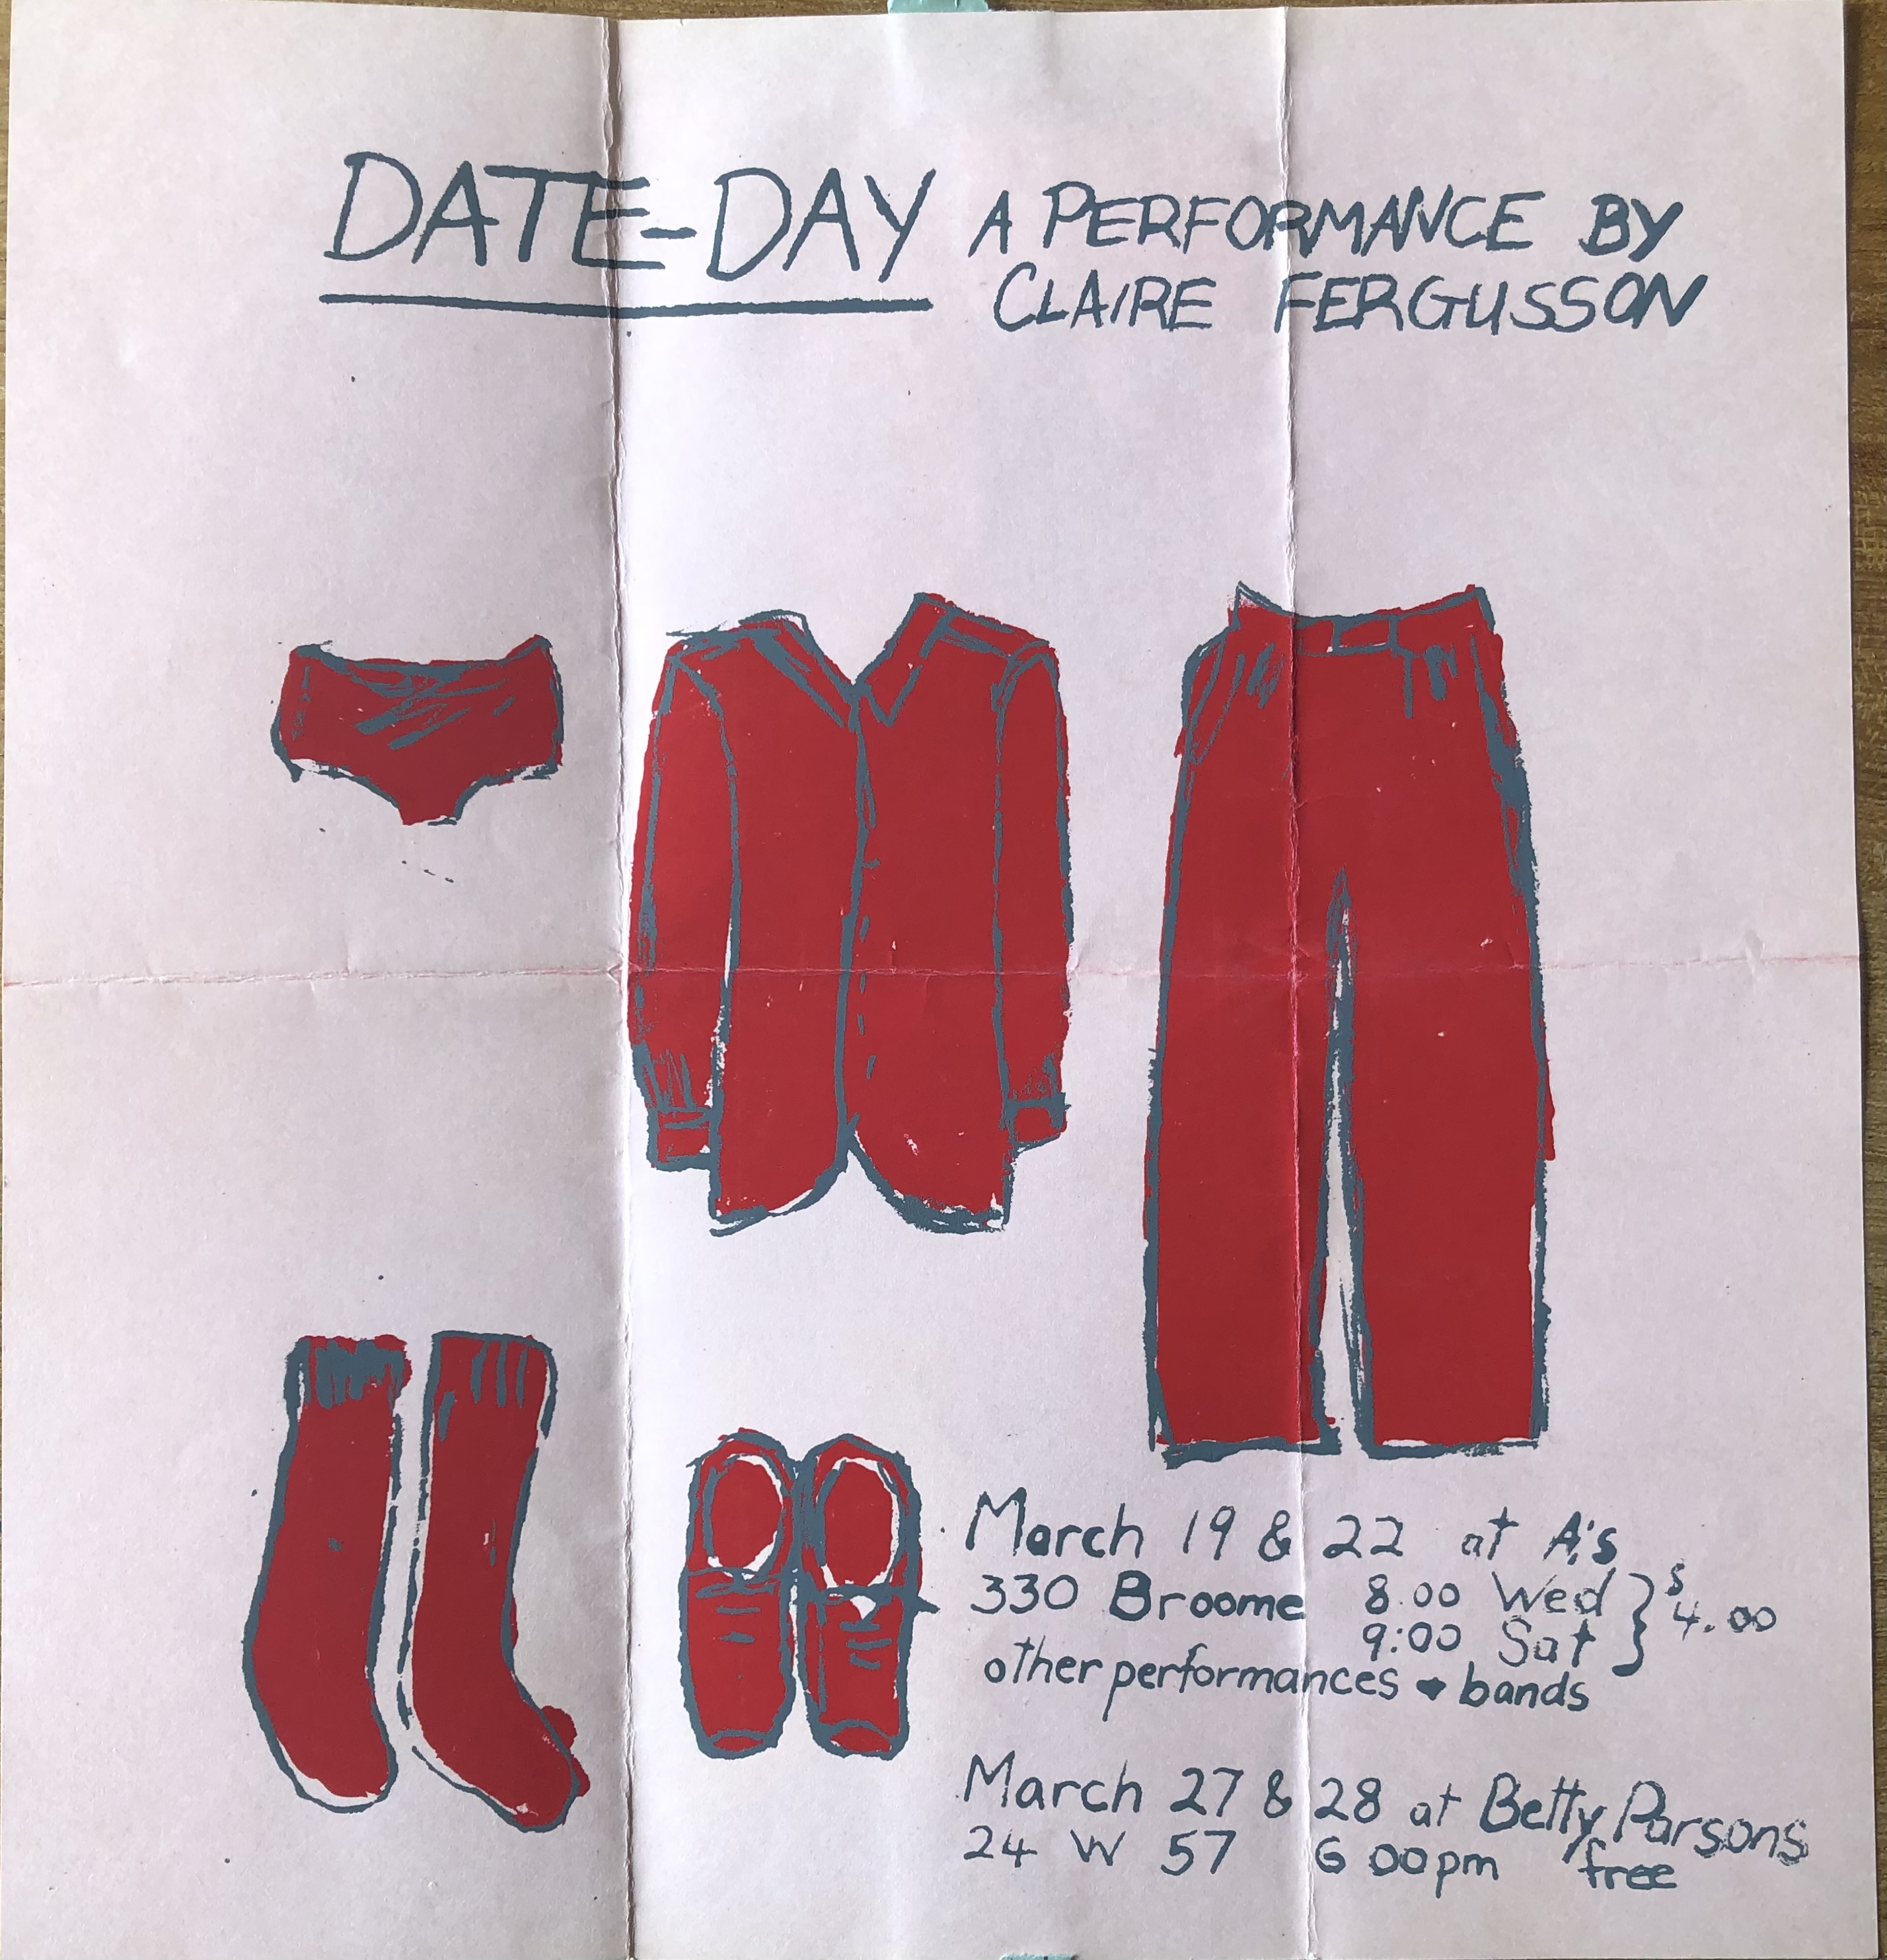 DATE-DAY A PERFORMANCE BY
CLAIRE FERGUSSON
March 19 & 22 at A's
330 Broome 8.00 Wed } $4.00
9:00 Sat
other performances + bands
March 27 & 28 at Betty Parsons
24 W 57 6 00pm free